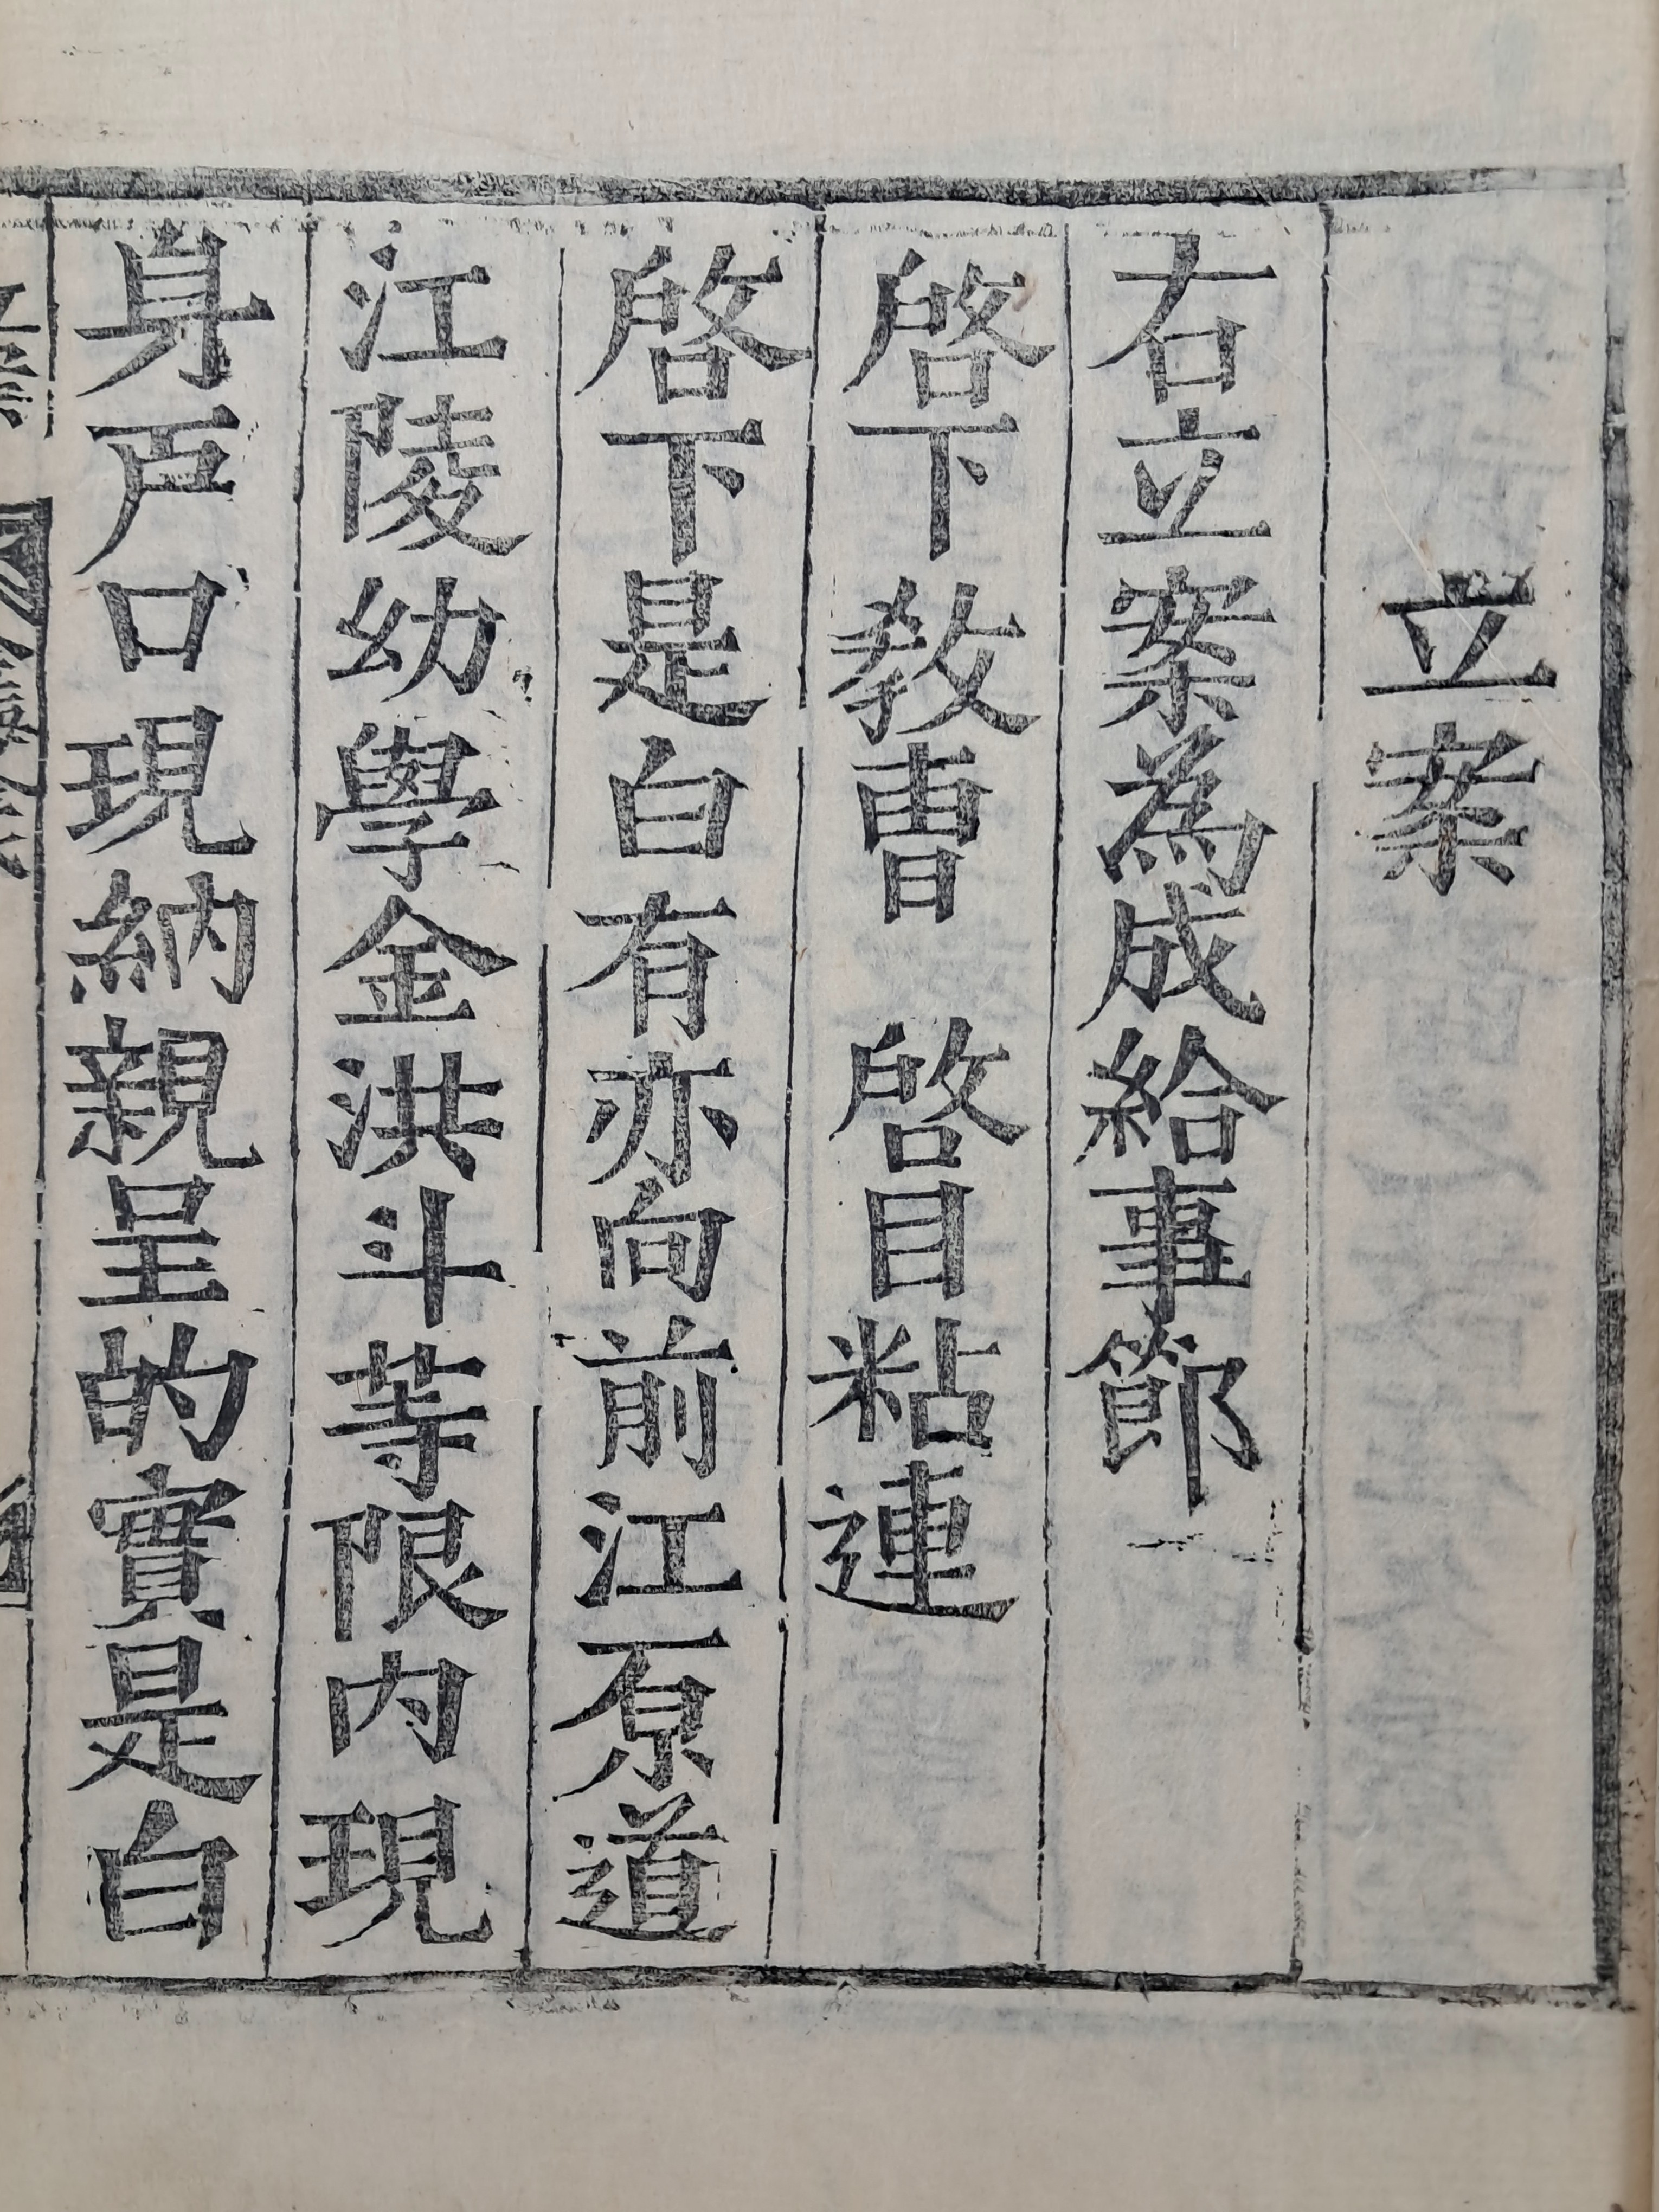 立案
右立案為成給事節
啓下教曺　啓目粘連
啓下是白有亦向前江原道
江陵幼學金洪斗等限内現
身戸口現納親呈的實是白